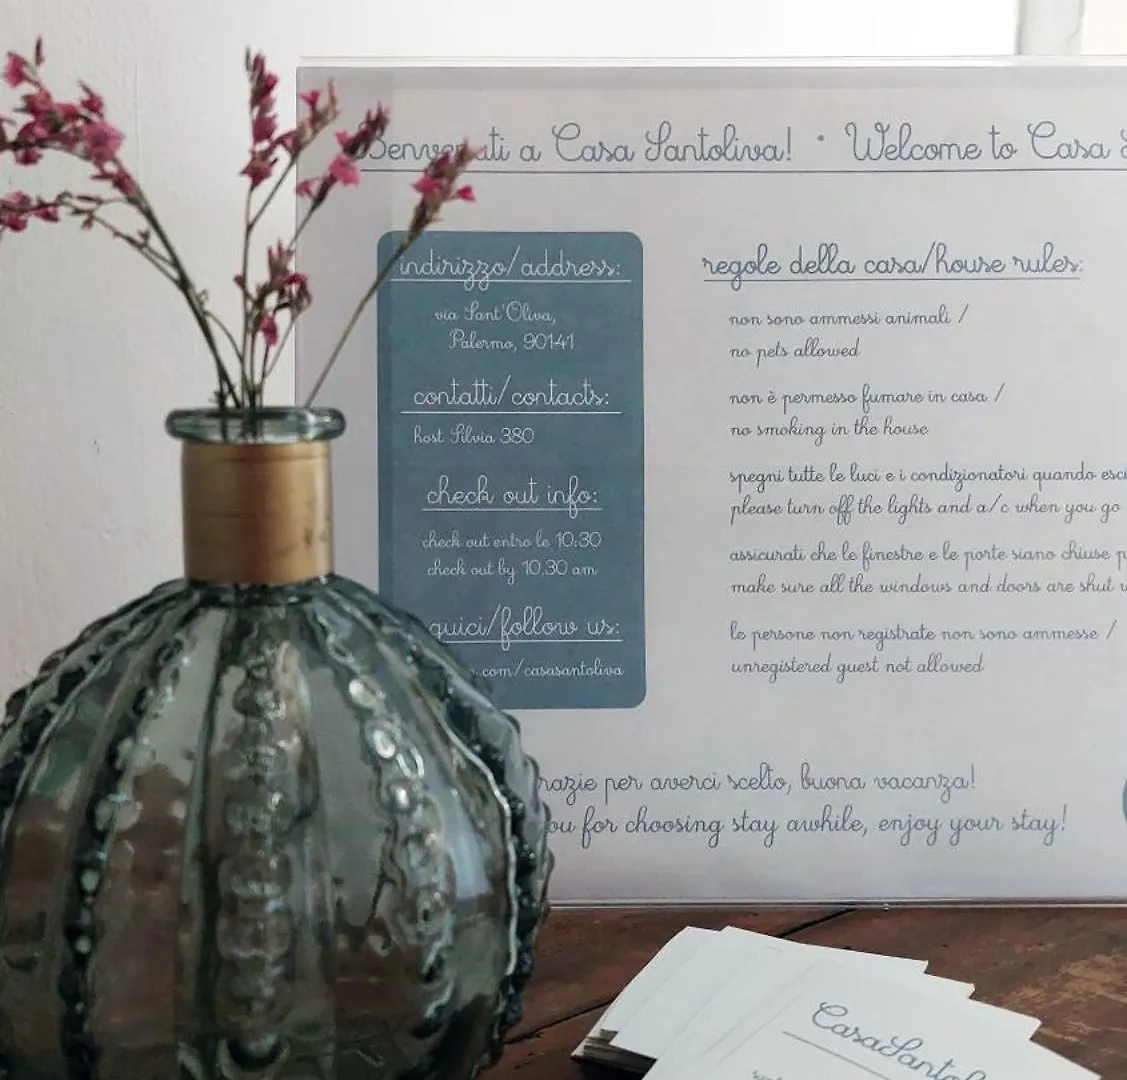 Benvenuti a Casa Santoliva! • Welcome to Casa
indirizzo/address:
via Sant'Oliva,
Palermo, 90141
contatti/contacts:
host Silvia 380
check out info:
check out entro le 10:30
check out by 10.30 am
follow us:
.com/casasantoliva
regole della casa/house rules:
non sono ammessi animali /
no pets allowed
non è permesso fumare in casa /
no smoking in the house
spegni tutte le luci e i condizionatori quando
please turn off the lights and a/c when you go
assicurati che le finestre e le porte siano chiuse
make sure all the windows and doors are shut
le persone non registrate non sono ammesse /
unregistered guest not allowed
razie per averci scelto, buona vacanza!
ou for choosing stay awhile, enjoy your stay!
CasaSanto